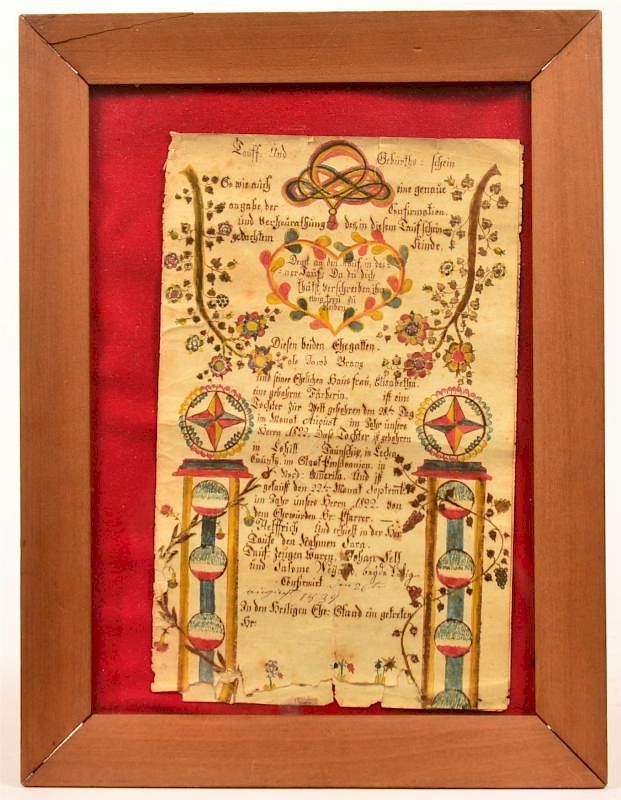 Tauff: Und Geburths: schein
So wie auch eine genaue
angabe, der Confirmation.
und Verheurathung des, in diesem Taufschein
gedachtem Kinde.
Denk an den Kauf, in dei-
ner Tauf: Da du dich
thätst verschreiben
ewig treu zu
bleiben
Diesen beiden Ehegatten.
als Jacob
und seiner Ehelichen Haus frau, Elisabetha.
eine gebohrne Färberin. ist eine
Tochter Zur Welt gebohren den Tag
im Monat August. im Jahr unsers
Herrn 1822. Diese Tochter ist gebohren
in Taunschip, in Lecha
County, im Staat in
Nord: America. Und ist
getauft den 22ten Monat Septemb:
im Jahr unsers Herrn 1822. von
dem Ehrwürden Hr: Pfarrer.
Helffrich und erhielt in der Hei:
Taufe den Nahmen Sara.
Tauf: Zeigen Waren. Johan
und Salome ledig
Confirmirt den 20ten
august 1839
In den Heiligen Ehe: Stand ein getreten
Hr: